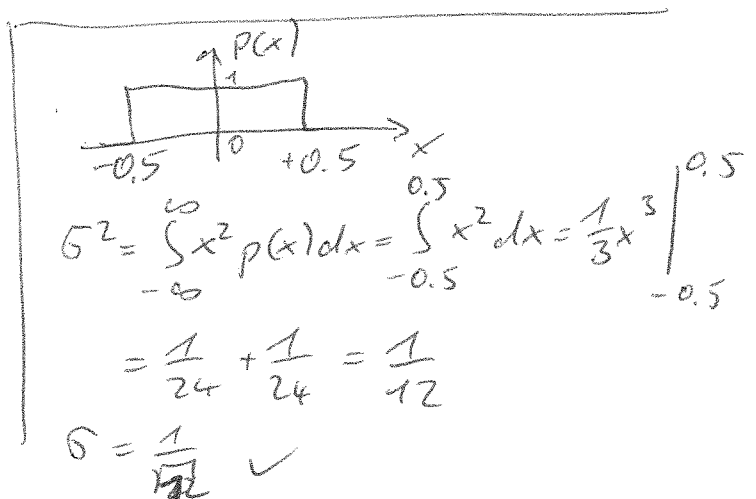 p(x)
1
-0.5 0 +0.5 x
σ² = ∫_{-∞}^{∞} x² p(x) dx = ∫_{-0.5}^{0.5} x² dx = 1/3 x³ |_{-0.5}^{0.5}
= 1/24 + 1/24 = 1/12
σ = 1/√12 ✓